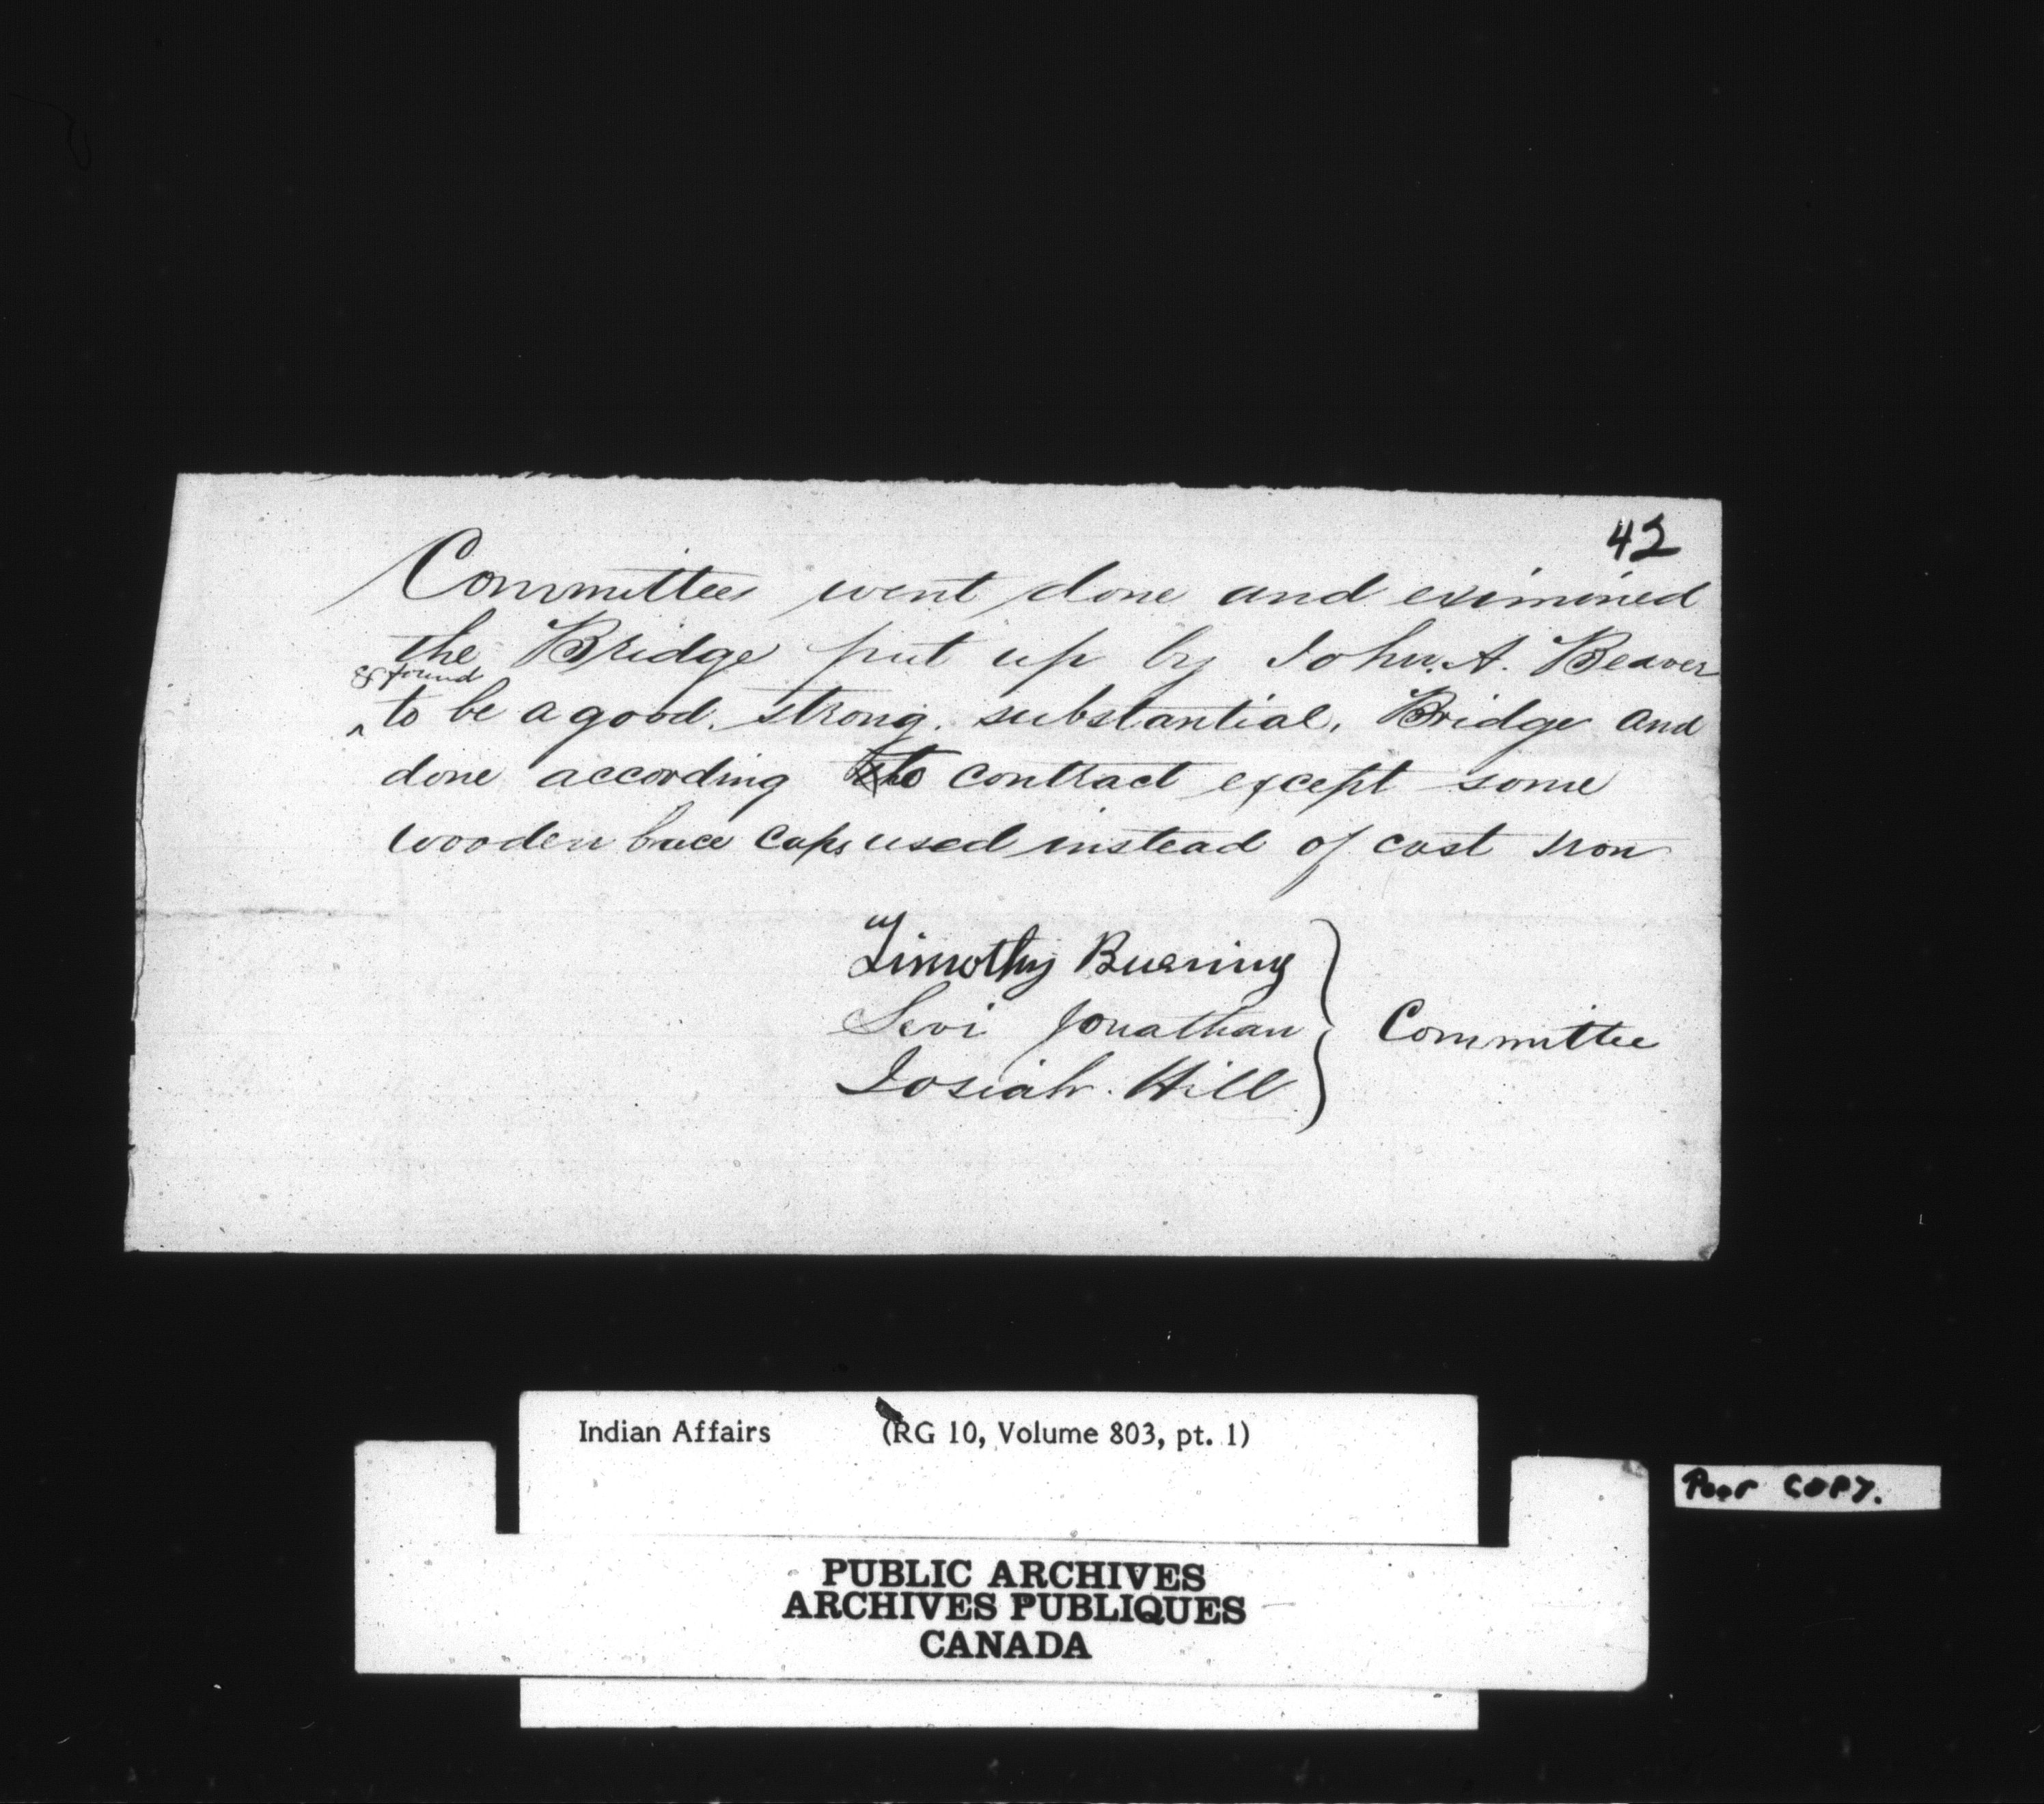 42
Committee went done and eximined
the Bridge put up by John. A. Beaver
& found
^ to be a good. strong. substantial. Bridge and
done according to contract except some
wooden brace caps used instead of cast iron
Timothy
Levi Jonathan
Josiah Hill
Committee
Indian Affairs (RG 10, Volume 803, pt. 1)
Poor COPY.
PUBLIC ARCHIVES
ARCHIVES PUBLIQUES
CANADA